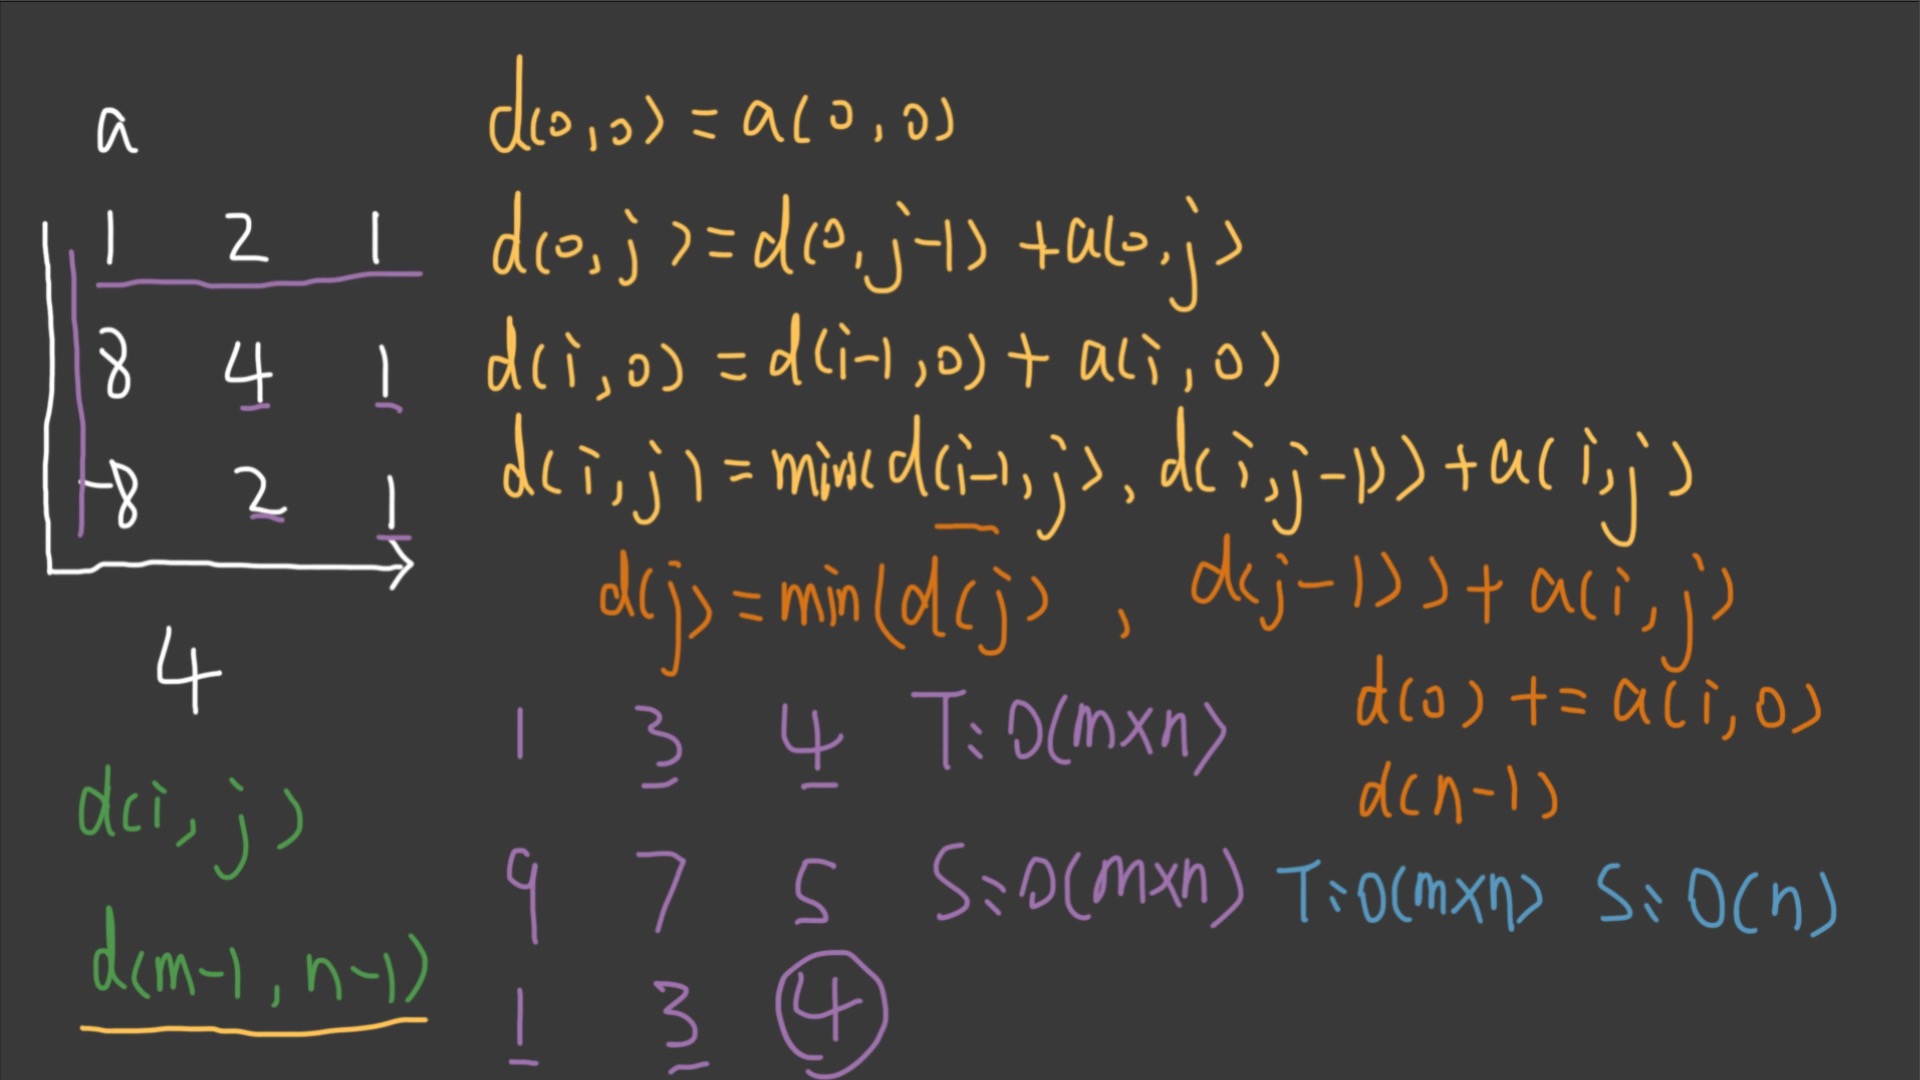 a
1 2 1
8 4 1
-8 2 1
4
d(i, j)
d(m-1, n-1)
d(0,0) = a(0,0)
d(0, j) = d(0, j-1) + a(0, j)
d(i, 0) = d(i-1, 0) + a(i, 0)
d(i, j) = min(d(i-1, j), d(i, j-1)) + a(i, j)
d(j) = min(d(j), d(j-1)) + a(i, j)
d(0) += a(i, 0)
d(n-1)
1 3 4
9 7 5
1 3 4
T: O(m×n)
S: O(m×n)
T: O(m×n) S: O(n)